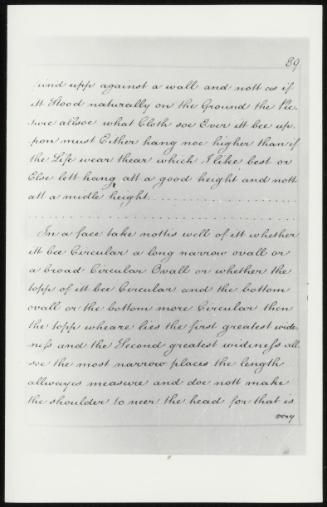 89
uind upp against a wall and nott as if
itt Stood naturally on the Ground the Pic-
ture allsoe what Cloth soe Ever itt bee up-
pon must Either hang noe higher than if
the Life wear thear which I like best or
Else lett hang att a good height and nott
att a midle height.....................
.......................................
In a face take nottis well of itt whether
itt bee Circular a long narrow ovall or
a broad Circular Ovall or whether the
topp of itt bee Circular and the bottom
ovall or the bottom more Circular then
the topp wheare lies the first greatest wide-
ness and the Second greatest wideness all-
soe the most narrow places the length
allwayes measure and doe nott make
the shoulder to neer the head for that is
very